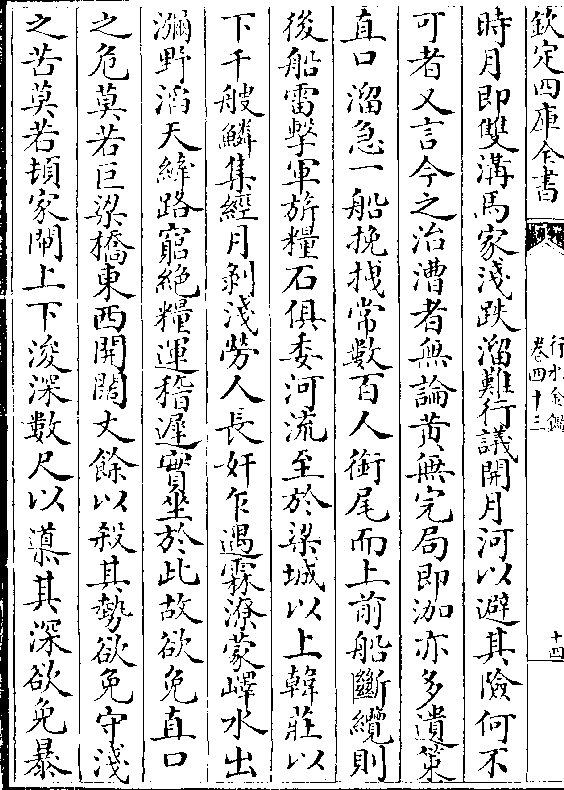 欽定四庫全書
行水金鑑
卷四十三
十四
時月即雙溝馬家淺跌溜難行議開月河以避其險何不
可者又言今之治漕者無論黄無完局即泇亦多遺策
直口溜急一船挽拽常數百人銜尾而上前船斷纜則
後船雷擊軍旂糧石俱委河流至於梁城以上韓莊以
下千艘鱗集經月剥淺勞人長奸乍遇霖潦蒙嶧水出
瀰野滔天縴路窮絶糧運稽遲實坐於此故欲免直口
之危莫若巨梁橋東西開闊丈餘以殺其勢欲免守淺
之苦莫若頓家閘上下浚深數尺以導其深欲免暴